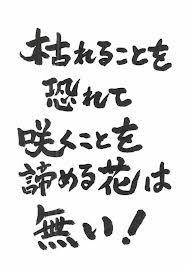 枯れることを
恐れて
咲くことを
諦める花は
無い!